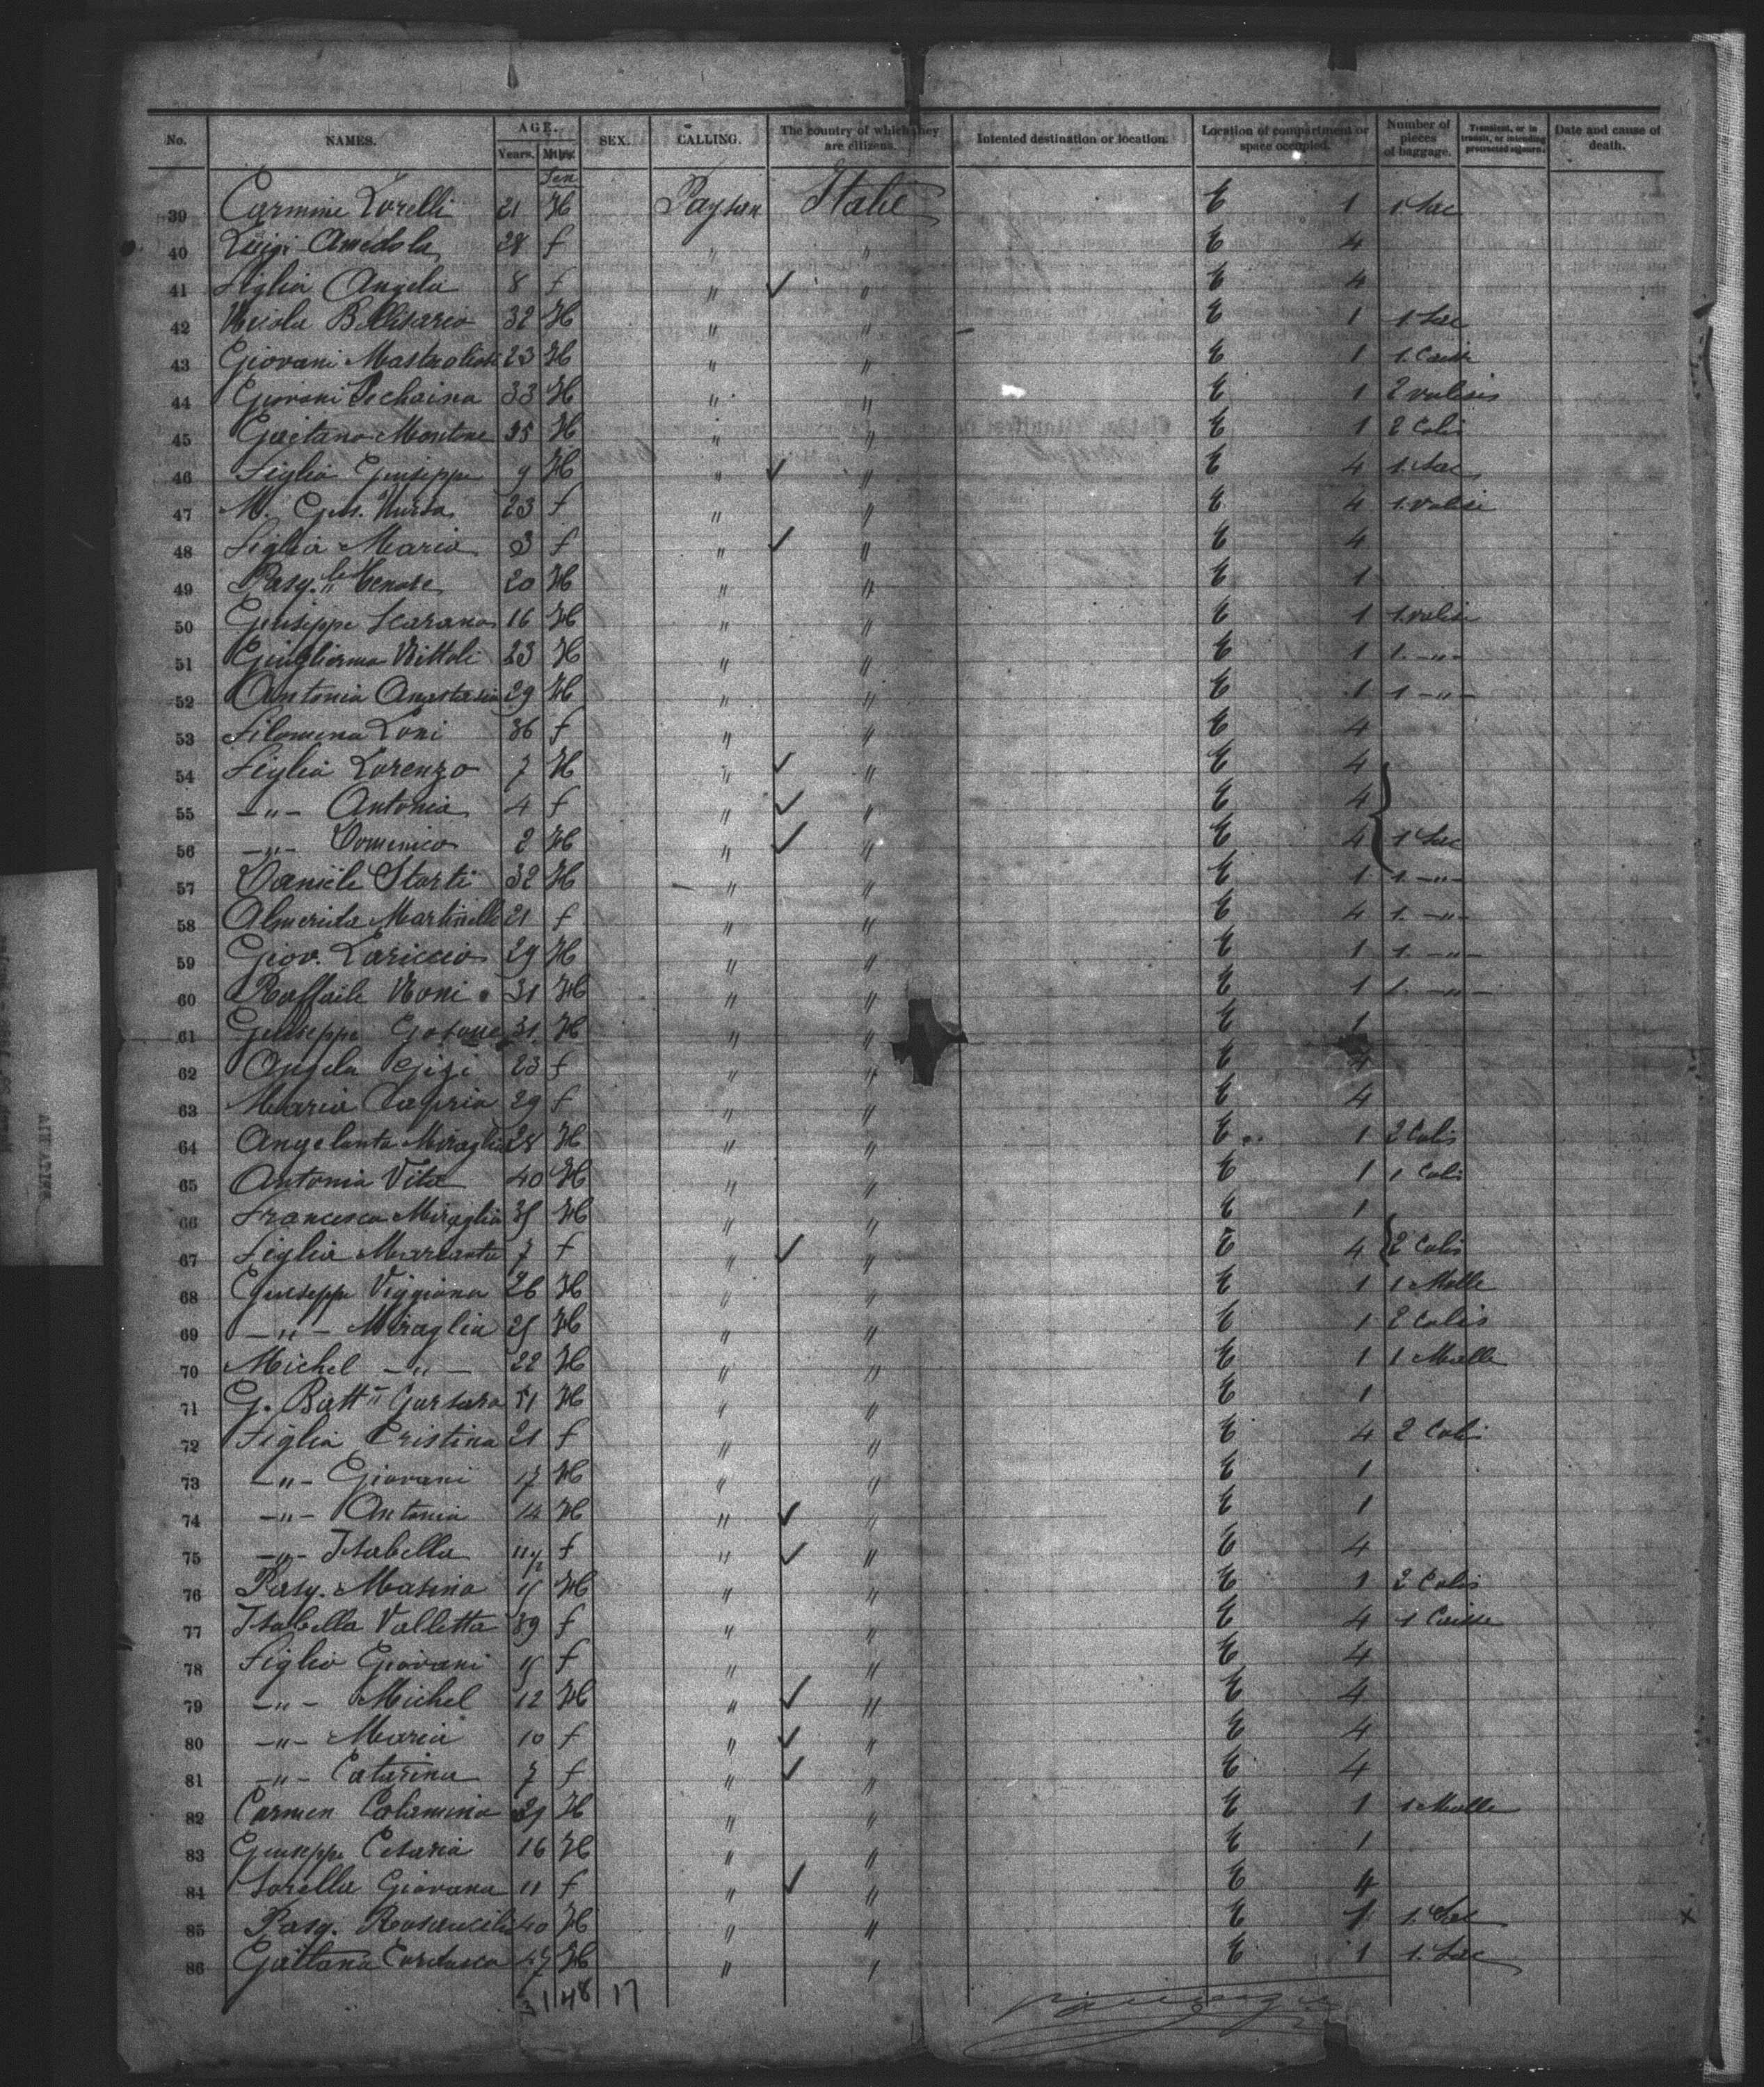 No. NAMES. AGE. Years. Mths. SEX. CALLING. The country of which they are citizens. Intented destination or location. Location of compartment or space occupied. Number of pieces of baggage. Transient, or in transit, or intending protracted sojourn. Date and cause of death.
39 Carmine Lorelli 21 H Paysan Italie E 1 1 Sac
40 Luigi Amedola 28 f " " E 4
41 Figlia Angela 8 f " ✓ " E 4
42 Nicola Bellisario 32 H " " E 1 1 Sac
43 Giovani 23 H " " E 1 1 Caisse
44 Giovani 33 H " " E 1 2 valises
45 Gaetano Montone 35 H " " E 1 2 Colis
46 Figlia Giuseppe 9 H " ✓ " E 4 1 Sac
47 M. 23 f " " E 4 1 valise
48 Figlia Maria 3 f " ✓ " E 4
49 Pasq. le 20 H " " E 1
50 Giuseppe Scarano 16 H " " E 1 1 valise
51 Guiglierma Vittoli 23 H " " E 1 1 -"-
52 Antonia Anastasia 29 H " " E 1 1 -"-
53 Filomena Loni 36 f " " E 4
54 Figlia Lorenzo 7 H " ✓ " E 4
55 -"- Antonia 4 f " ✓ " E 4
56 -"- Dominico 2 H " ✓ " E 4 1 Sac
57 Daniele Storti 32 H " " E 1 1. -"-
58 Almerida Martinelli 21 f " " E 4 1. -"-
59 Giov. Lariccio 29 H " " E 1 1. -"-
60 Raffaile Noni 31 H " " E 1 1. -"-
61 Giuseppe 31 H " " E 1
62 Angela Gizi 23 f " " E 4
63 Maria Capria 29 f " " E 4
64 Angelanto Miraglia 28 H " " E 1 2 Colis
65 Antonia Vita 40 H " " E 1 1 Colis
66 Francesca Miraglia H " " E 1
67 Figlia Marianta 7 f " ✓ " E 4 2 Colis
68 Giuseppe Viggiana 26 H " " E 1 1 Malle
69 -"- Miraglia H " " E 1 2 Colis
70 Michel -"- 22 H " " E 1 1 Malle
71 G. Batt Garsara 51 H " " E 1
72 Figlia Cristina 21 f " " E 4 2 Colis
73 -"- Giovani 17 H " " E 1
74 -"- Antonia 14 H " ✓ " E 1
75 -"- Isabella 11 1/2 f " ✓ " E 4
76 Pasq. Masino H " " E 1 2 Colis
77 Isabella Valletta 39 f " " E 4 1 Caisse
78 Figlio Giovani f " " E 4
79 -"- Michel 12 H " ✓ " E 4
80 -"- Maria 10 f " ✓ " E 4
81 -"- Catarina 7 f " ✓ " E 4
82 Carmen Colamina 29 H " " E 1 1 Malle
83 Giuseppe Cesaria 16 H " " E 1
84 Sorella Giovana 11 f " ✓ " E 4
85 Pasq. 40 H " " E 1 1. Sac x
86 Gaittana 47 H " " E 1 1. Sac
31 48 17